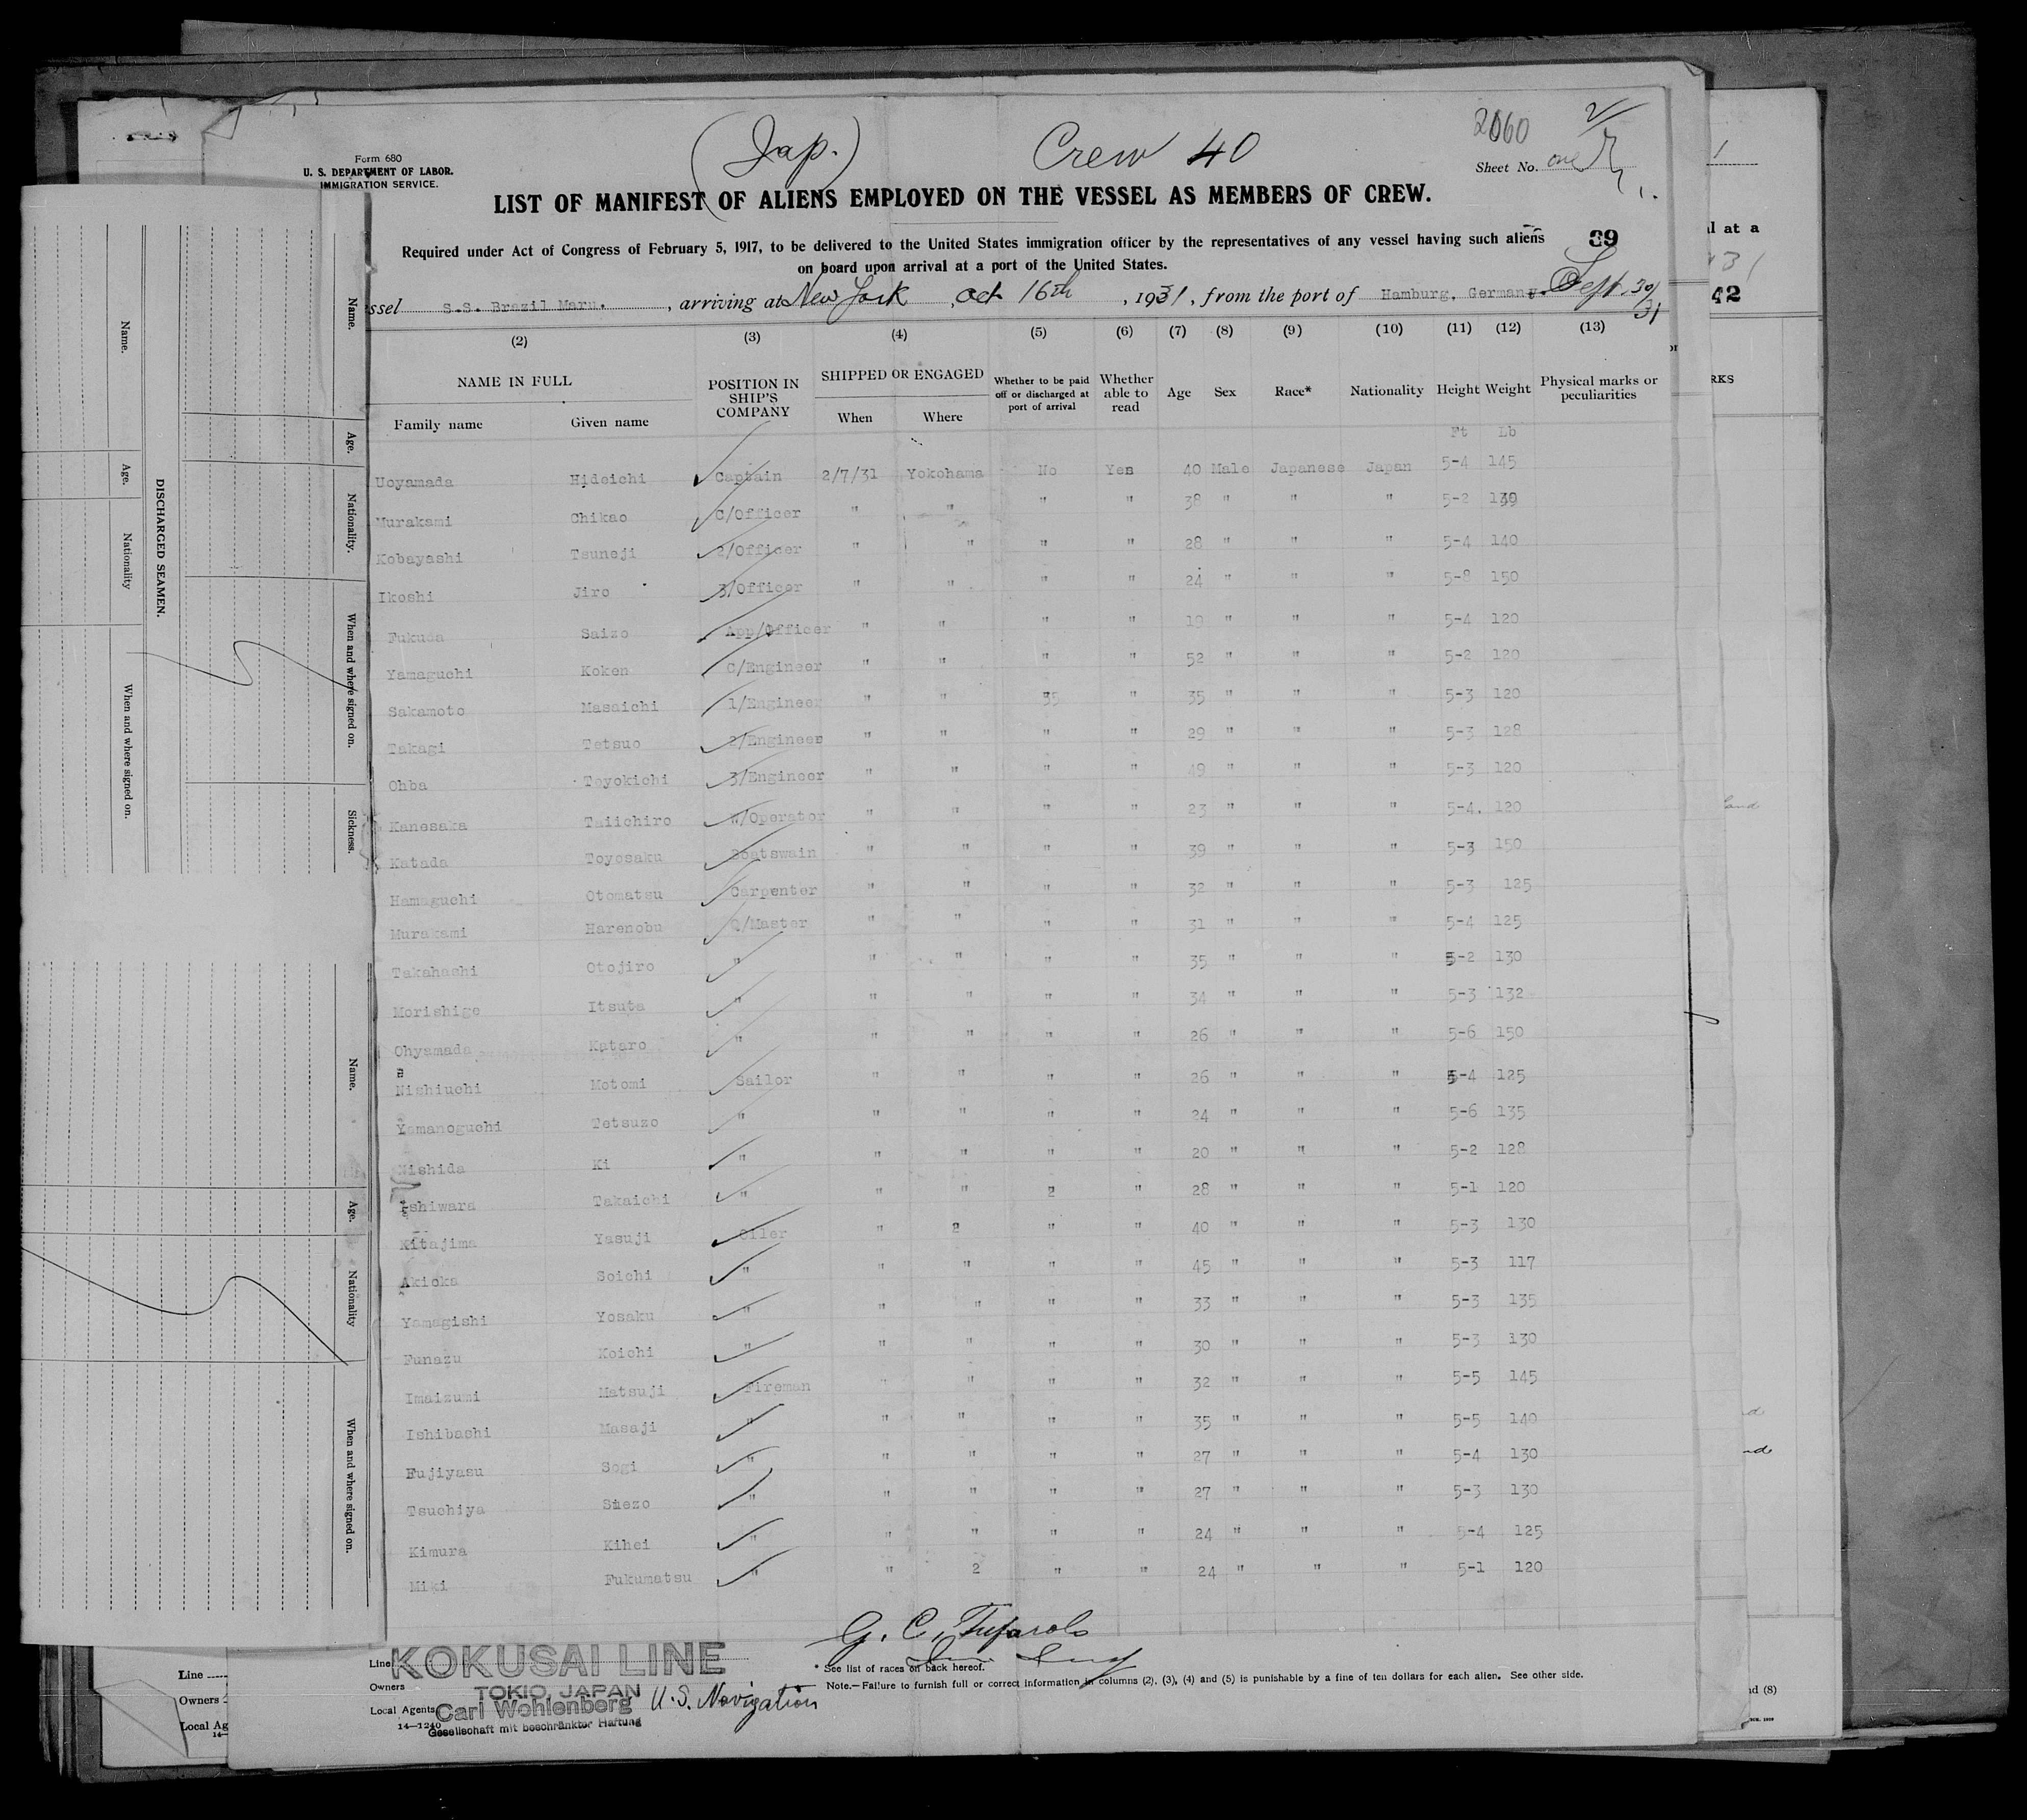 (Jap.) Crew 40 2060
Form 680
U. S. DEPARTMENT OF LABOR.
IMMIGRATION SERVICE.
Sheet No. one
LIST OF MANIFEST OF ALIENS EMPLOYED ON THE VESSEL AS MEMBERS OF CREW.
Required under Act of Congress of February 5, 1917, to be delivered to the United States immigration officer by the representatives of any vessel having such aliens 39
on board upon arrival at a port of the United States.
ssel S.S. Brazil Maru. , arriving at New York , Oct 16th , 1931, from the port of Hamburg, Germany. Sept. 30/31
(2) (3) (4) (5) (6) (7) (8) (9) (10) (11) (12) (13)
NAME IN FULL POSITION IN SHIP'S COMPANY SHIPPED OR ENGAGED Whether to be paid off or discharged at port of arrival Whether able to read Age Sex Race* Nationality Height Weight Physical marks or peculiarities
Family name Given name When Where
Ft Lb
Uoyamada Hideichi Captain 2/7/31 Yokohama No Yes 40 Male Japanese Japan 5-4 145
Murakami Chikao C/Officer " " " " 38 " " " 5-2 139
Kobayashi Tsuneji 2/Officer " " " " 28 " " " 5-4 140
Ikoshi Jiro 3/Officer " " " " 24 " " " 5-8 150
Fukuda Saizo App/Officer " " " " 19 " " " 5-4 120
Yamaguchi Koken C/Engineer " " " " 52 " " " 5-2 120
Sakamoto Masaichi 1/Engineer " " 35 " 35 " " " 5-3 120
Takagi Tetsuo 2/Engineer " " " " 29 " " " 5-3 128
Ohba Toyokichi 3/Engineer " " " " 49 " " " 5-3 120
Kanesaka Taiichiro W/Operator " " " " 23 " " " 5-4. 120
Katada Toyosaku Boatswain " " " " 39 " " " 5-3 150
Hamaguchi Otomatsu Carpenter " " " " 32 " " " 5-3 125
Murakami Harenobu Q/Master " " " " 31 " " " 5-4 125
Takahashi Otojiro " " " " " 35 " " " 5-2 130
Morishige Itsuta " " " " " 34 " " " 5-3 132
Ohyamada Kataro " " " " " 26 " " " 5-6 150
Nishiuchi Motomi Sailor " " " " 26 " " " 5-4 125
Yamanoguchi Tetsuzo " " " " " 24 " " " 5-6 135
Nishida Ki " " " " " 20 " " " 5-2 128
Ishiwara Takaichi " " " 2 " 28 " " " 5-1 120
Kitajima Yasuji Oiler " 2 " " 40 " " " 5-3 130
Akioka Soichi " " " " " 45 " " " 5-3 117
Yamagishi Yosaku " " " " " 33 " " " 5-3 135
Funazu Koichi " " " " " 30 " " " 5-3 130
Imaizumi Matsuji Fireman " " " " 32 " " " 5-5 145
Ishibashi Masaji " " " " " 35 " " " 5-5 140
Fujiyasu Sogi " " " " " 27 " " " 5-4 130
Tsuchiya Suezo " " " " " 27 " " " 5-3 130
Kimura Kihei " " " " " 24 " " " 5-4 125
Miki Fukumatsu " " 2 " " 24 " " " 5-1 120
G. C.
Line KOKUSAI LINE
Owners TOKIO, JAPAN
Local Agents Carl Wohlenberg U.S. Navigation
Gesellschaft mit beschränkter Haftung
14—1240
* See list of races on back hereof.
Note.—Failure to furnish full or correct information in columns (2), (3), (4) and (5) is punishable by a fine of ten dollars for each alien. See other side.
DISCHARGED SEAMEN.
Name. Age. Nationality When and where signed on.
Name. Age. Nationality. When and where signed on. Sickness.
Name. Age. Nationality When and where signed on.
Line
Owners
Local Ag
14—
l at a
42
RKS
land
nd
nd (8)